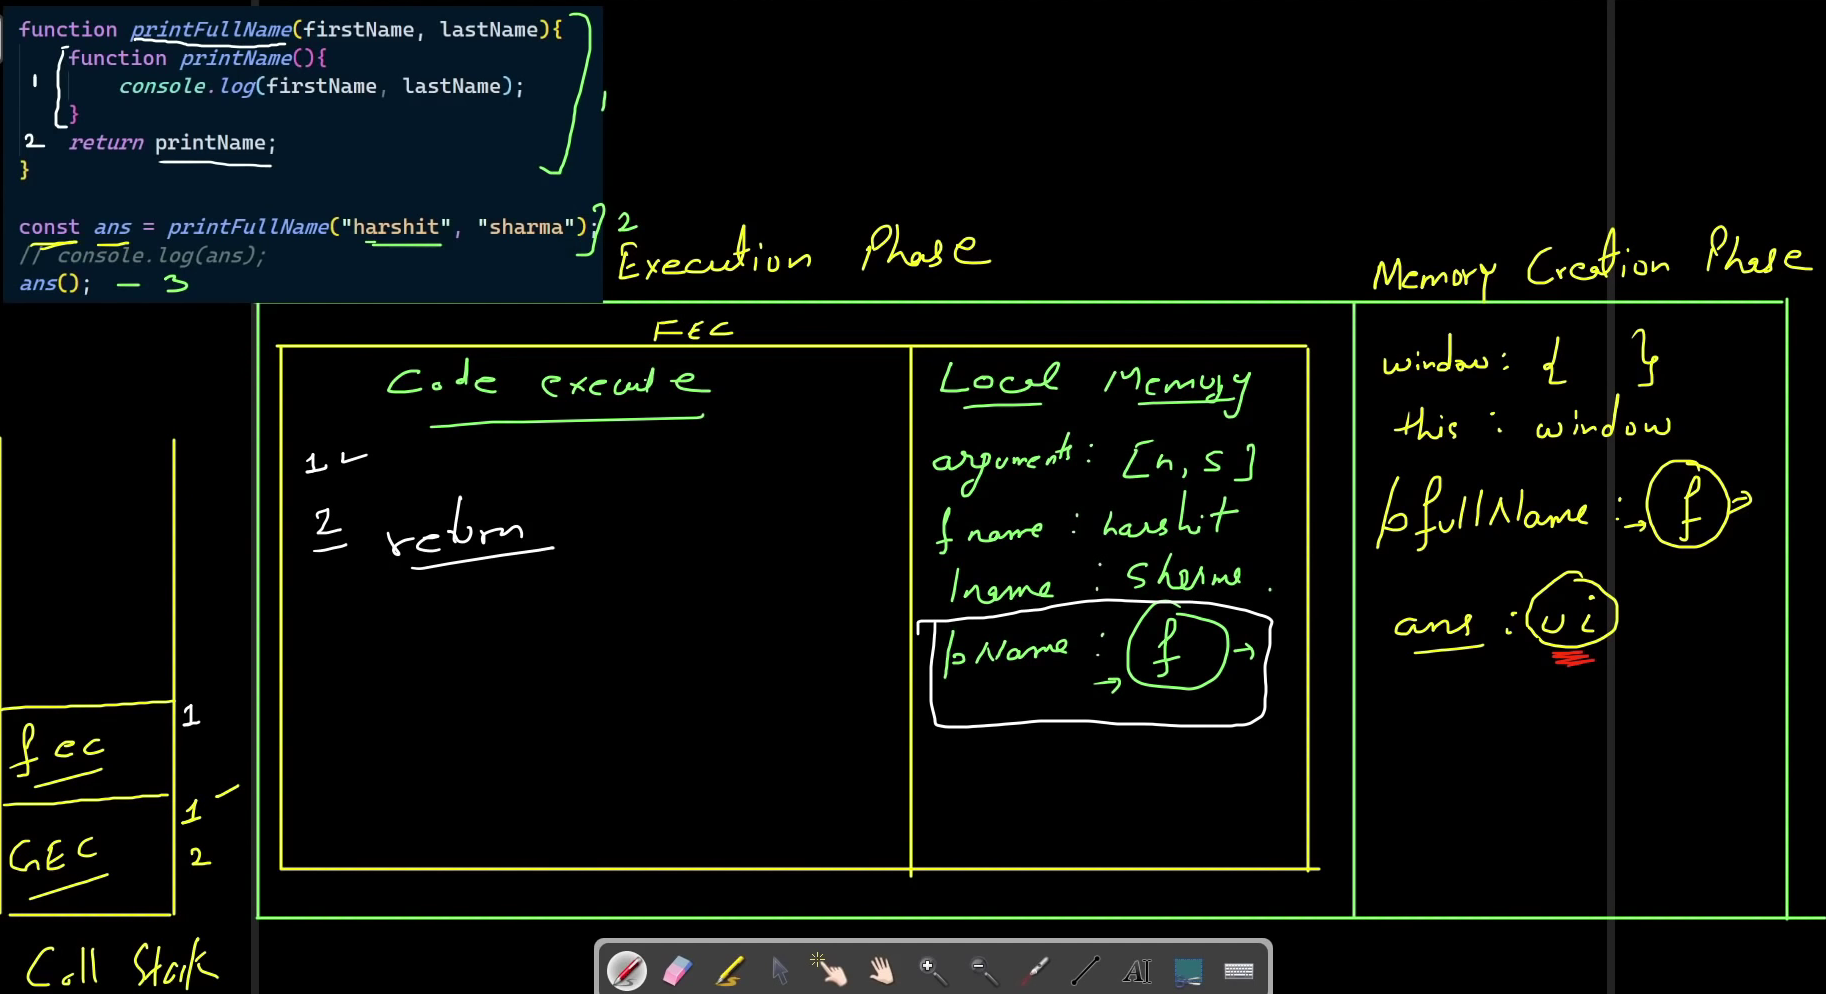 function printFullName(firstName, lastName){
1 function printName(){
console.log(firstName, lastName);
}
2 return printName;
}
1
const ans = printFullName("harshit", "sharma");
2
// console.log(ans);
ans(); — 3
Execution Phase
Memory Creation Phase
FEC
Code execute
Local Memory
window : { }
this : window
arguments : [h, s]
1
2 return
fname : harshit
lname : Sharma
pName : f
pfullName : f
ans : ui
fec 1
GEC 1
2
Call Stack
AI